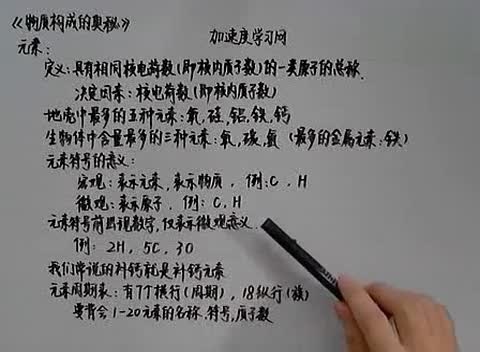 《物质构成的奥秘》
加速度学习网
元素：
定义：具有相同核电荷数(即核内质子数)的一类原子的总称.
决定因素：核电荷数(即核内质子数)
地壳中最多的五种元素：氧,硅,铝,铁,钙
生物体中含量最多的三种元素：氧,碳,氢 (最多的金属元素：铁)
元素符号的意义：
宏观：表示元素,表示物质. 例：C. H
微观：表示原子. 例：C, H
元素符号前出现数字,仅表示微观意义.
例：2H, 5C, 3O
我们常说的补钙就是补钙元素
元素周期表：有7个横行(周期), 18纵行(族)
要背会1-20元素的名称.符号,质子数